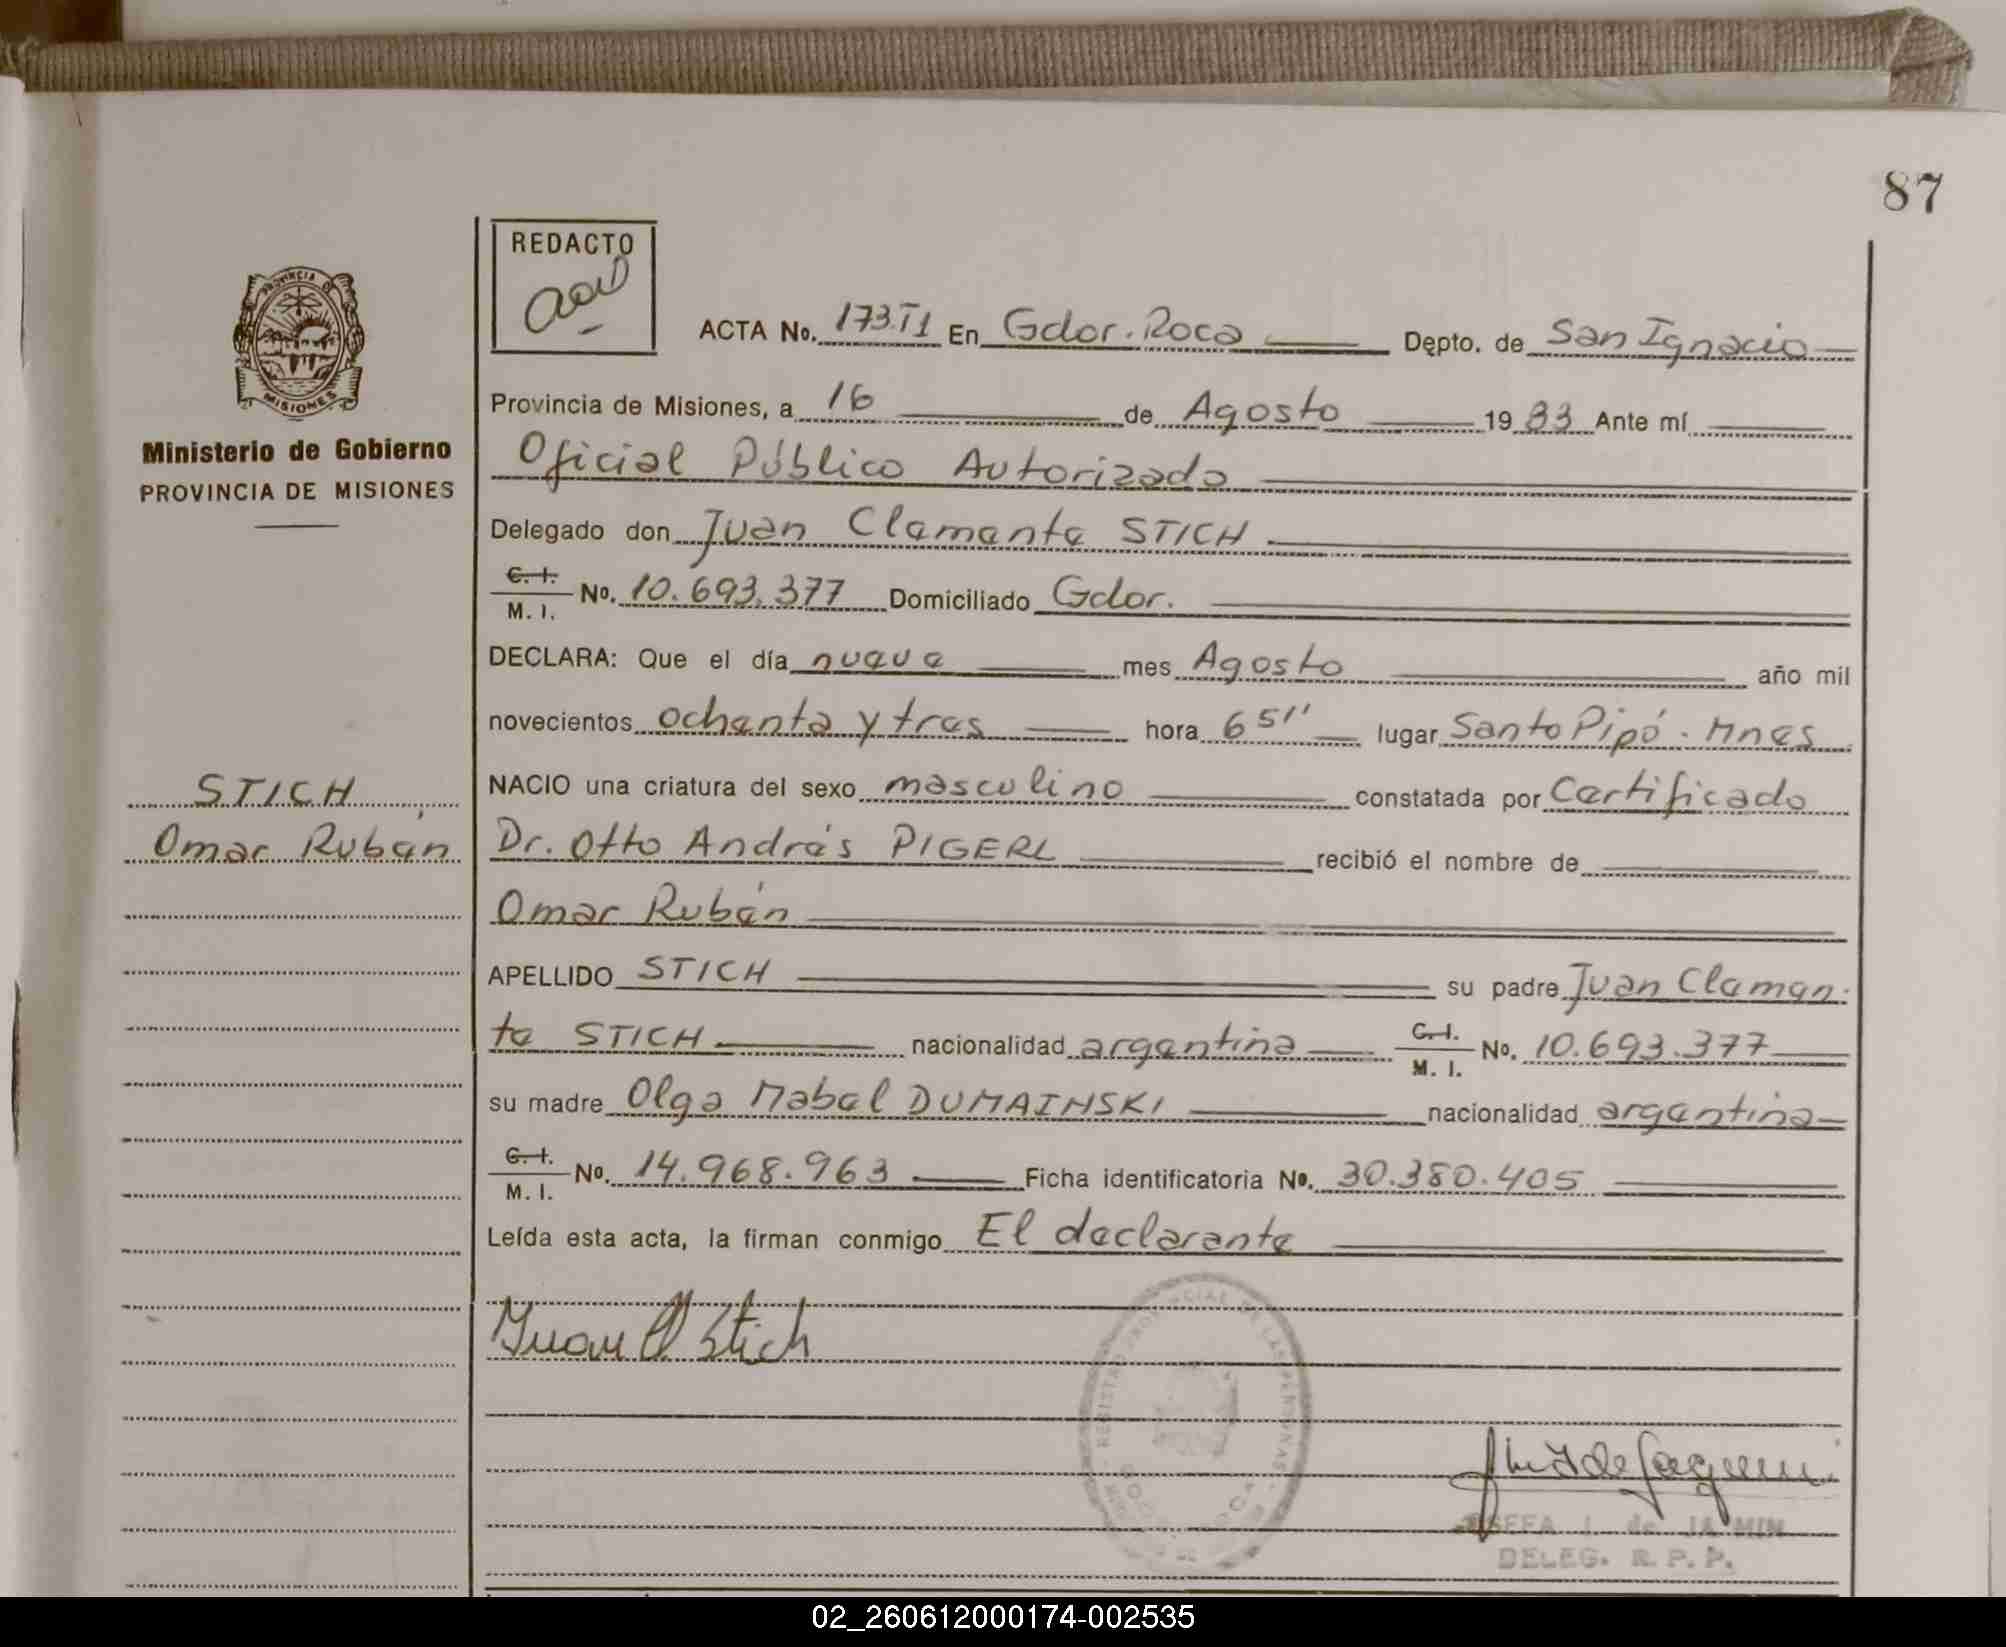 87
REDACTO
ACTA No. 173.T1 En Gdor. Roca Depto. de San Ignacio
Provincia de Misiones, a 16 de Agosto 1983 Ante mí
Oficial Público Autorizado
Delegado don Juan Clemente STICH
C. I. M. I. No. 10.693.377 Domiciliado Gdor.
DECLARA: Que el día nueve mes Agosto año mil
novecientos ochenta y tres hora 6 51'' lugar Santo Pipó. Mnes
NACIO una criatura del sexo masculino constatada por Certificado
Dr. Otto Andrés PIGERL recibió el nombre de
Omar Rubén
APELLIDO STICH su padre Juan Clemen
te STICH nacionalidad argentina C. I. M. I. No. 10.693.377
su madre Olga Mabel DUMAINSKI nacionalidad argentina
C. I. M. I. No. 14.968.963 Ficha identificatoria No. 30.380.405
Leída esta acta, la firman conmigo El declarante
Juan C Stich
DELEG. R. P. P.
PROVINCIA DE
MISIONES
Ministerio de Gobierno
PROVINCIA DE MISIONES
STICH,
Omar Rubén
02_260612000174-002535